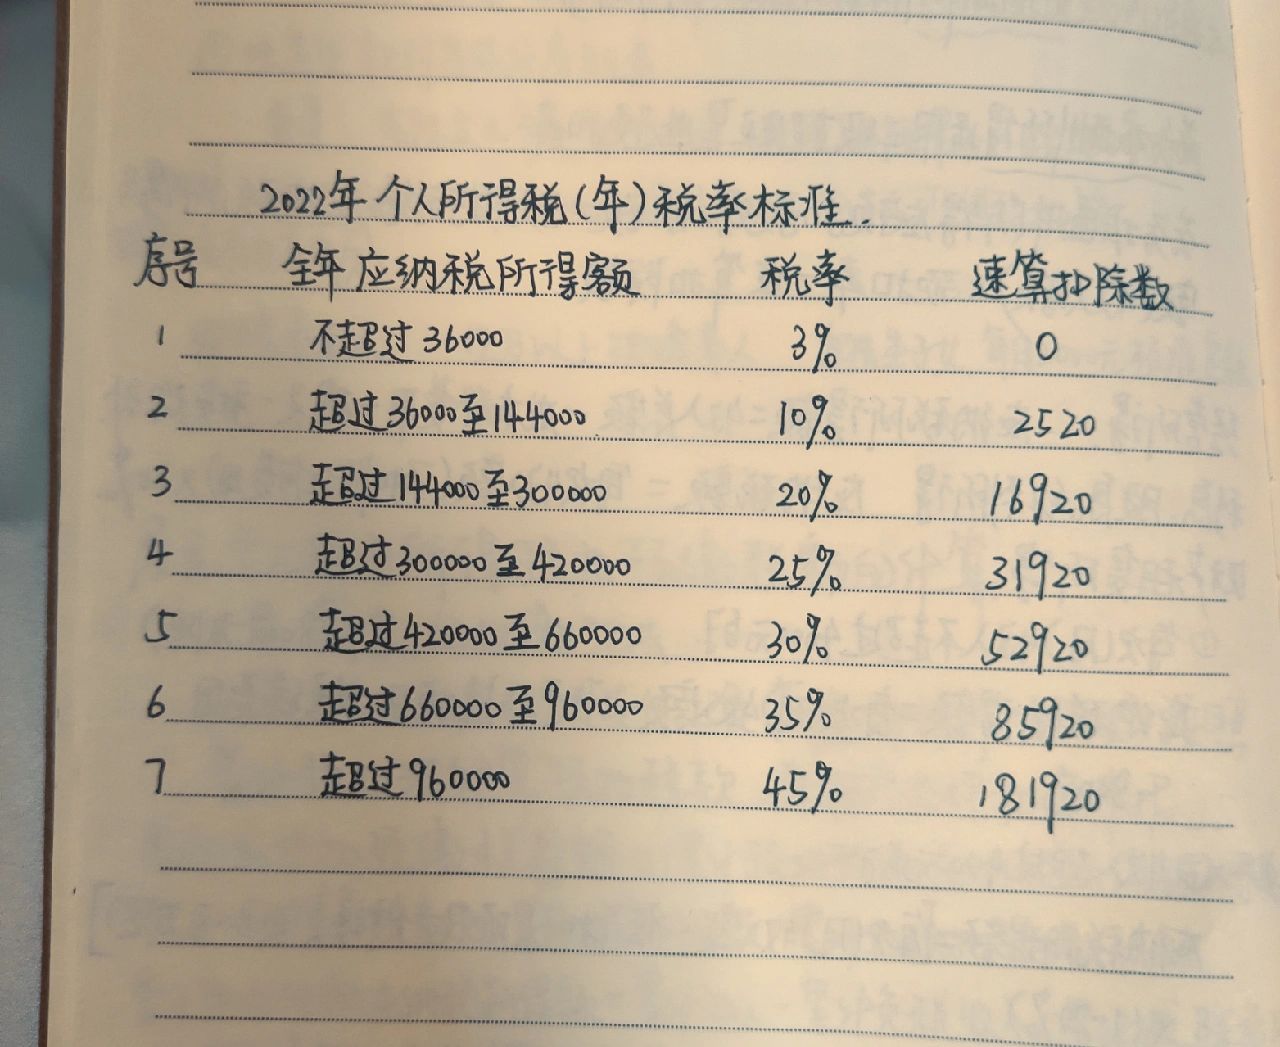 2022年个人所得税(年)税率标准.
序号 全年应纳税所得额 税率 速算扣除数
1 不超过36000 3% 0
2 超过36000至144000 10% 2520
3 超过144000至300000 20% 16920
4 超过300000至420000 25% 31920
5 超过420000至660000 30% 52920
6 超过660000至960000 35% 85920
7 超过960000 45% 181920